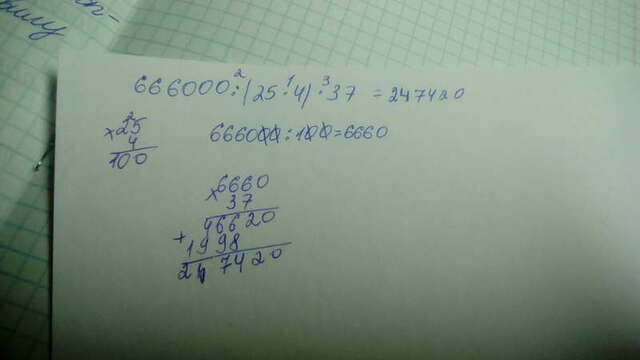 666000:(25·4)·37 = 247420
2 1 3
2
×25
4
100
666000:100=6660
×6660
37
46620
+
1998
247420